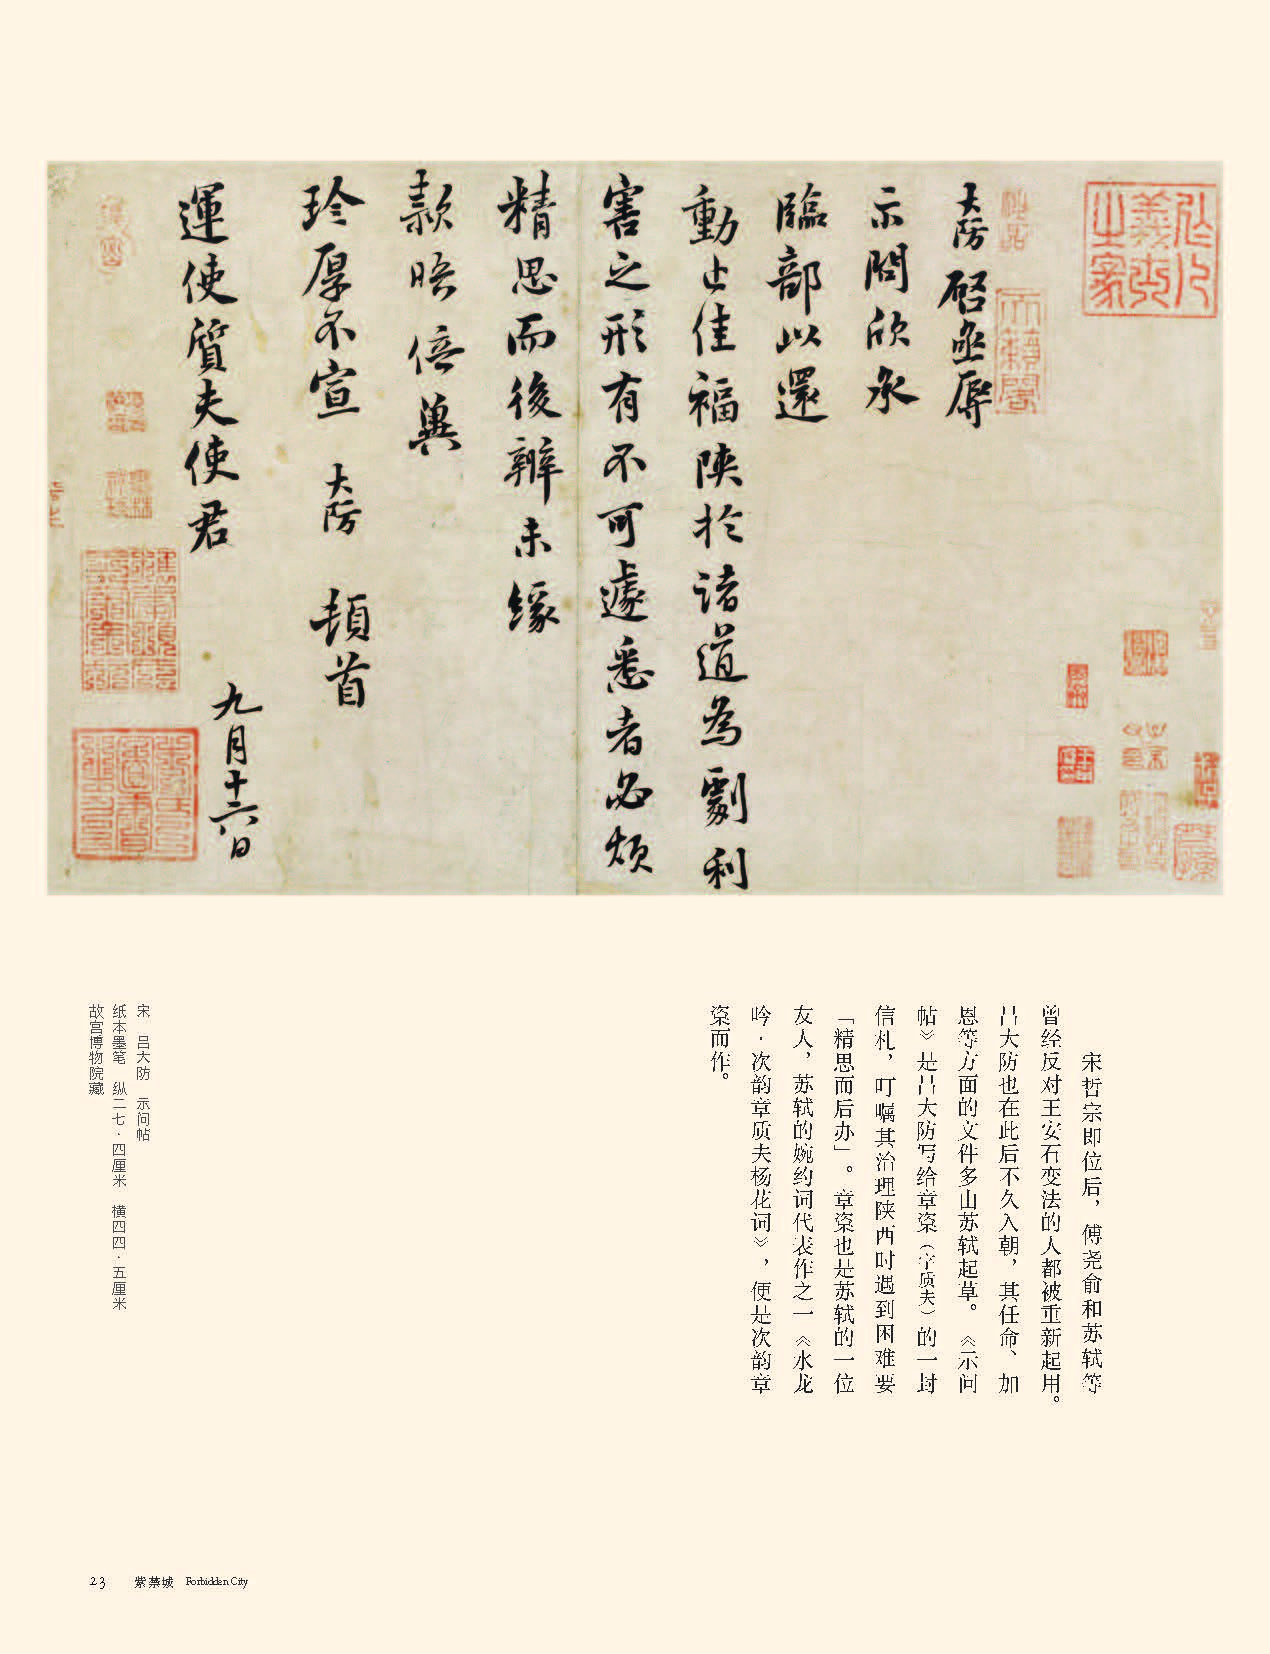 大防啓亟辱
示問欣承
臨部以還
動止佳福陝於諸道為劇利
害之形有不可遽悉者必煩
精思而後辦未緣
款晤倍冀
珍厚不宣 大防 頓首
運使質夫使君
九月十六日
宋哲宗即位后，傅尧俞和苏轼等
曾经反对王安石变法的人都被重新起用。
吕大防也在此后不久入朝，其任命、加
恩等方面的文件多由苏轼起草。《示问
帖》是吕大防写给章楶（字质夫）的一封
信札，叮嘱其治理陕西时遇到困难要
「精思而后办」。章楶也是苏轼的一位
友人，苏轼的婉约词代表作之一《水龙
吟·次韵章质夫杨花词》，便是次韵章
楶而作。
宋 吕大防 示问帖
纸本墨笔 纵二七·四厘米 横四四·五厘米
故宫博物院藏
23 紫禁城 Forbidden City